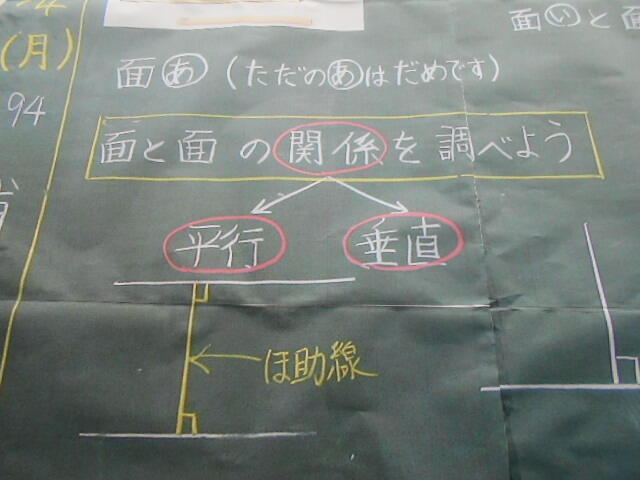 (月)
94
面あ(ただのあはだめです)
面と面の関係を調べよう
平行 垂直
ほ助線
面いと